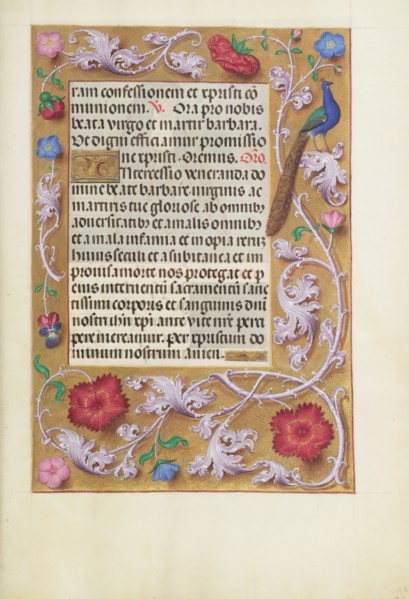 ram confessionem et xpristi cō
munionem. V. Ora pro nobis
beata virgo et martir barbara.
Ut digni efficiamur promissio
ne xpristi. Oremus. Oro.
Intercessio veneranda do
mine beate barbare virginis ac
martiris tue gloriose ab omnibꝰ
adversitatibꝰ et a malis omnibꝰ
et a mala infamia et inopia rerū
huius seculi et a subitanea et im
provisa morte nos protegat et p
eius interventū sacramentū sanc
tissimi corporis et sanguinis dn̄i
nostri ihū xpi ante vite nr̄e
percipere mereamur. Per xpristum do
minum nostrum amen.